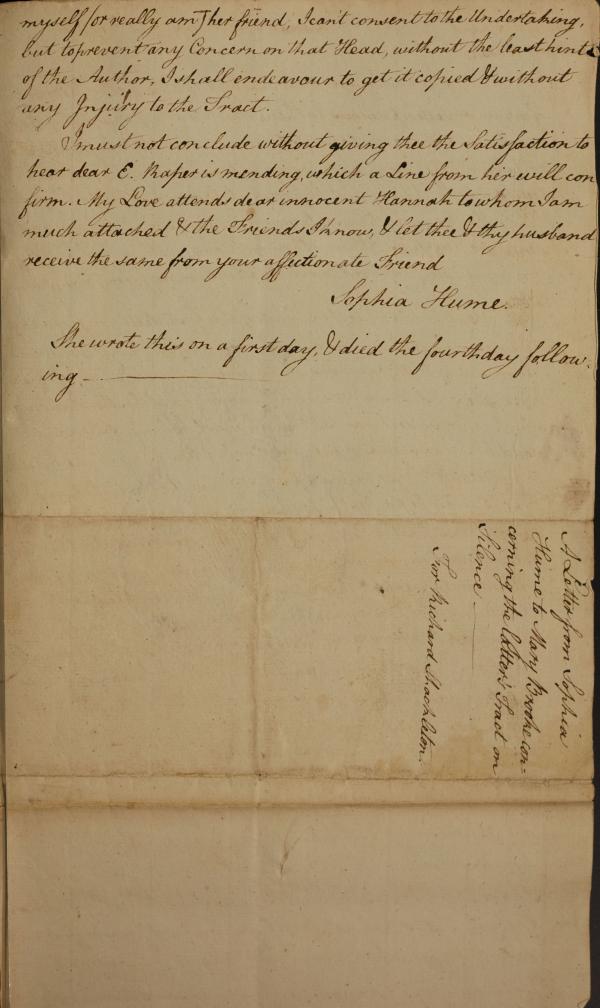 myself (or really am) her friend, I can't consent to the Undertaking,
but to prevent any Concern on that Head, without the least hint
of the Author, I shall endeavour to get it copied & without
any Injury to the Tract.
I must not conclude without giving thee the Satisfaction to
hear dear E. Raper is mending, which a Line from her will con
firm. My Love attends dear innocent Hannah to whom I am
much attached & the Friends I know, & let thee & thy husband
receive the same from your affectionate Friend
Sophia Hume.
She wrote this on a first day, & died the fourth day follow-
ing
A Letter from Sophia
Hume to Mary Brooke con-
cerning the latter's Tract on
Silence
For Richard Shackleton.